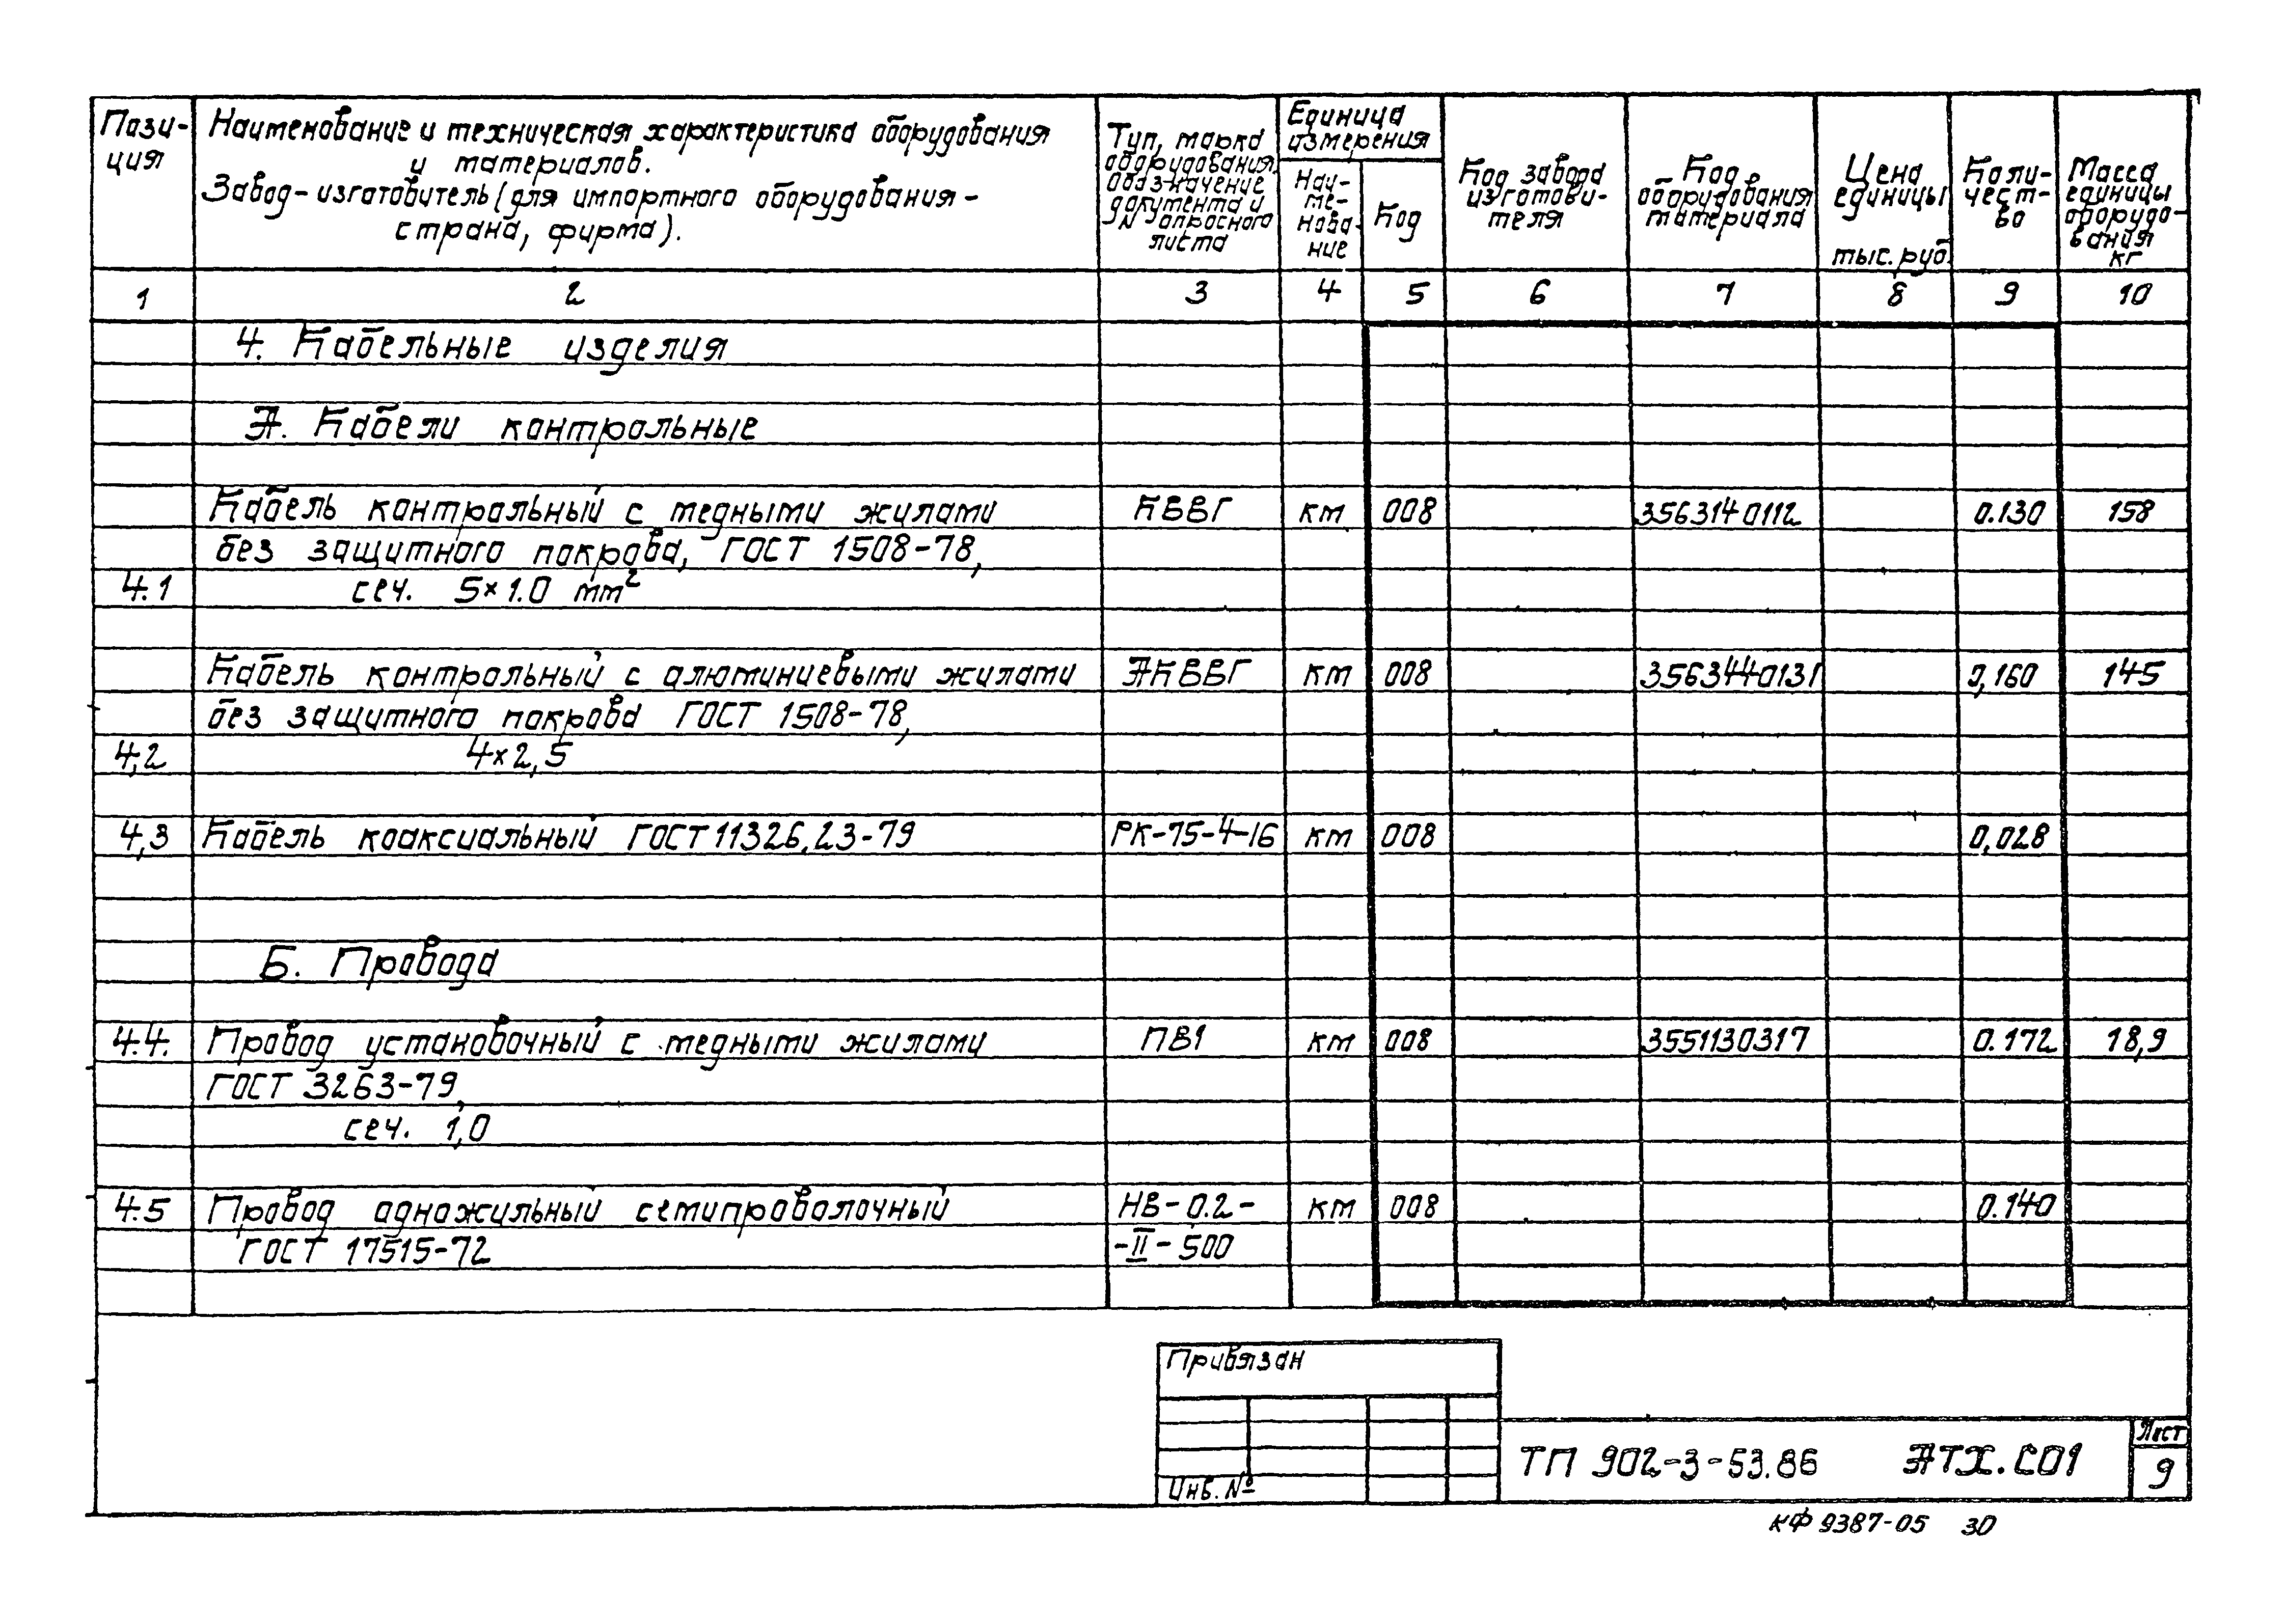 Пози-
ция
Наименование и техническая характеристика оборудования
и материалов.
Завод-изготовитель (для импортного оборудования -
страна, фирма).
Тип, марка
оборудования,
обозначение
документа и
№ опросного
листа
Единица
измерения
Наи-
ме-
нова-
ние
Код
Код завода
изготови-
теля
Код
оборудования
материала
Цена
единицы
тыс. руб.
Коли-
чест-
во
Масса
единицы
оборудо-
вания
кг
1 2 3 4 5 6 7 8 9 10
4. Кабельные изделия
А. Кабели контрольные
Кабель контрольный с медными жилами КВВГ км 008 3563140112 0.130 158
без защитного покрова, ГОСТ 1508-78,
4.1 сеч. 5×1.0 мм²
Кабель контрольный с алюминиевыми жилами АКВВГ км 008 3563440131 0,160 145
без защитного покрова ГОСТ 1508-78,
4,2 4×2,5
4,3 Кабель коаксиальный ГОСТ 11326.23-79 РК-75-4-16 км 008 0,028
Б. Провода
4.4. Провод установочный с медными жилами ПВ1 км 008 3551130317 0.172 18,9
ГОСТ 3263-79,
сеч. 1,0
4.5 Провод одножильный семипроволочный НВ-0.2- км 008 0.140
ГОСТ 17515-72 -II-500
Привязан
Инв. №
ТП 902-3-53.86 АТХ.СО1
Лист
9
КФ 9387-05 30